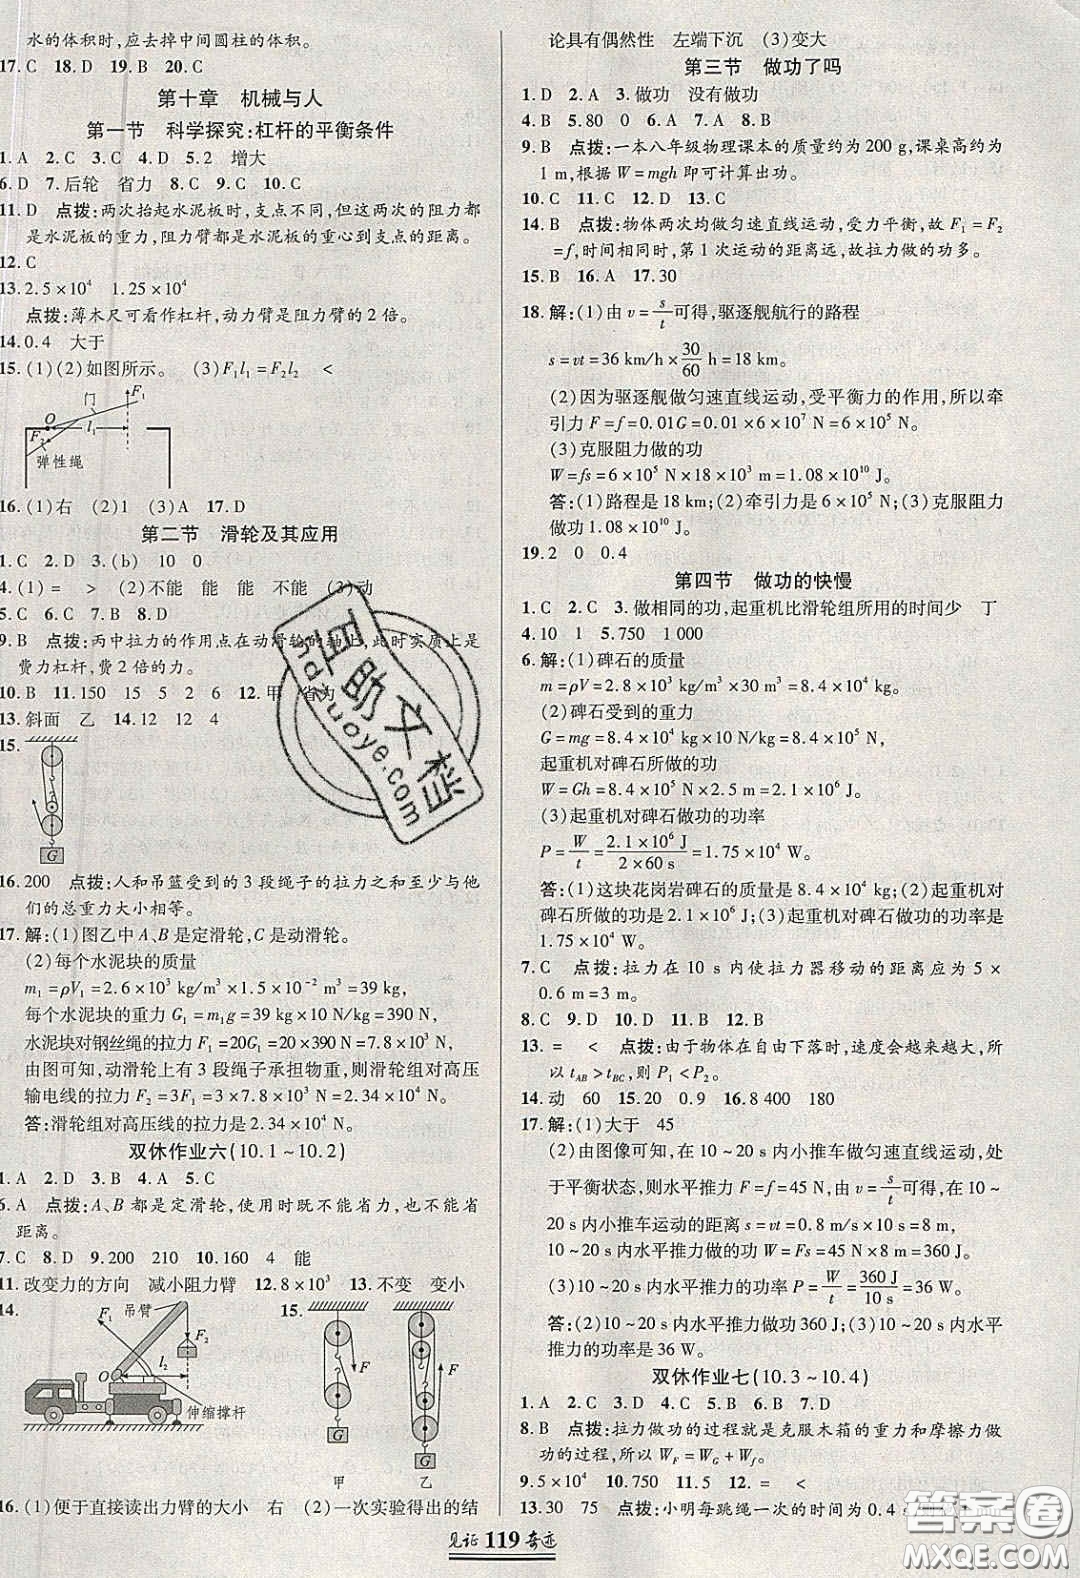 水的体积时,应去掉中间圆柱的体积。
17.C 18.D 19.B 20.C
第十章 机械与人
第一节 科学探究:杠杆的平衡条件
1.A 2.C 3.C 4.D 5.2 增大
6.D 7.后轮 省力 8.C 9.C 10.C
11.D 点拨:两次抬起水泥板时,支点不同,但这两次的阻力都
是水泥板的重力,阻力臂都是水泥板的重心到支点的距离。
12.C
13.2.5×10⁴ 1.25×10⁴
点拨:薄木尺可看作杠杆,动力臂是阻力臂的2倍。
14.0.4 大于
15.(1)(2)如图所示。 (3)F₁l₁=F₂l₂ <
门 F₁
O l₁
F₂
弹性绳
16.(1)右 (2)1 (3)A 17.D
第二节 滑轮及其应用
1.C 2.D 3.(b) 10 0
4.(1)= > (2)不能 能 能 不能 (3)动
5.C 6.D 7.B 8.D
9.B 点拨:丙中拉力的作用点在动滑轮的轴上,此时实质上是
费力杠杆,费2倍的力。
10.B 11.150 15 5 2 6 12.甲 省力
13.斜面 乙 14.12 12 4
15.
G
16.200 点拨:人和吊篮受到的3段绳子的拉力之和至少与他
们的总重力大小相等。
17.解:(1)图乙中A、B是定滑轮,C是动滑轮。
(2)每个水泥块的质量
m₁=ρV₁=2.6×10³ kg/m³×1.5×10⁻² m³=39 kg,
每个水泥块的重力G₁=m₁g=39 kg×10 N/kg=390 N,
水泥块对钢丝绳的拉力F₁=20G₁=20×390 N=7.8×10³ N,
由图可知,动滑轮上有3段绳子承担物重,则滑轮组对高压
输电线的拉力F₂=3F₁=3×7.8×10³ N=2.34×10⁴ N。
答:滑轮组对高压线的拉力是2.34×10⁴ N。
双休作业六(10.1~10.2)
1.A 2.D 3.D 4.A 5.C
6.A 点拨:A、B都是定滑轮,使用时既不能省力,也不能省
距离。
7.C 8.D 9.200 210 10.160 4 能
11.改变力的方向 减小阻力臂 12.8×10³ 13.不变 变小
14. F₁ 吊臂 F₂ l₂ O 伸缩撑杆
15. F G 甲 F G 乙
16.(1)便于直接读出力臂的大小 右 (2)一次实验得出的结
论具有偶然性 左端下沉 (3)变大
第三节 做功了吗
1.D 2.A 3.做功 没有做功
4.B 5.80 0 6.A 7.D 8.B
9.B 点拨:一本八年级物理课本的质量约为200 g,课桌高约为
1 m,根据W=mgh即可计算出功。
10.C 11.C 12.D 13.C
14.B 点拨:物体两次均做匀速直线运动,受力平衡,故F₁=F₂
=f,时间相同时,第1次运动的距离远,故拉力做的功多。
15.B 16.A 17.30
18.解:(1)由v=s/t可得,驱逐舰航行的路程
s=vt=36 km/h×30/60 h=18 km。
(2)因为驱逐舰做匀速直线运动,受平衡力的作用,所以牵
引力F=f=0.01G=0.01×6×10⁷ N=6×10⁵ N。
(3)克服阻力做的功
W=fs=6×10⁵ N×18×10³ m=1.08×10¹⁰ J。
答:(1)路程是18 km;(2)牵引力是6×10⁵ N;(3)克服阻力
做功1.08×10¹⁰ J。
19.2 0 0.4
第四节 做功的快慢
1.C 2.C 3.做相同的功,起重机比滑轮组所用的时间少 丁
4.10 1 5.750 1 000
6.解:(1)碑石的质量
m=ρV=2.8×10³ kg/m³×30 m³=8.4×10⁴ kg。
(2)碑石受到的重力
G=mg=8.4×10⁴ kg×10 N/kg=8.4×10⁵ N,
起重机对碑石所做的功
W=Gh=8.4×10⁵ N×2.5 m=2.1×10⁶ J。
(3)起重机对碑石做功的功率
P=W/t=2.1×10⁶ J/2×60 s=1.75×10⁴ W。
答:(1)这块花岗岩碑石的质量是8.4×10⁴ kg;(2)起重机对
碑石所做的功是2.1×10⁶ J;(3)起重机对碑石做功的功率是
1.75×10⁴ W。
7.C 点拨:拉力在10 s内使拉力器移动的距离应为5×
0.6 m=3 m。
8.C 9.D 10.D 11.B 12.B
13.= < 点拨:由于物体在自由下落时,速度会越来越大,所
以tAB>tBC,则P₁<P₂。
14.动 60 15.20 0.9 16.8 400 180
17.解:(1)大于 45
(2)由图像可知,在10~20 s内小推车做匀速直线运动,处
于平衡状态,则水平推力F=f=45 N,由v=s/t可得,在10~
20 s内小推车运动的距离s=vt=0.8 m/s×10 s=8 m,
10~20 s内水平推力做的功W=Fs=45 N×8 m=360 J。
(3)10~20 s内水平推力做功的功率P=W/t=360 J/10 s=36 W。
答:(2)10~20 s内水平推力做功360 J;(3)10~20 s内水平
推力做功的功率是36 W。
双休作业七(10.3~10.4)
1.A 2.C 3.C 4.D 5.C 6.B 7.D
8.B 点拨:拉力做功的过程就是克服木箱的重力和摩擦力做
功的过程,所以W_F=W_G+W_f。
9.5×10⁴ 10.750 11.5 5 12.= <
13.30 75 点拨:小明每跳绳一次的时间为0.4
见证 119 奇迹
互助文档
hdzuoye.com
答案圈
MXQE.COM